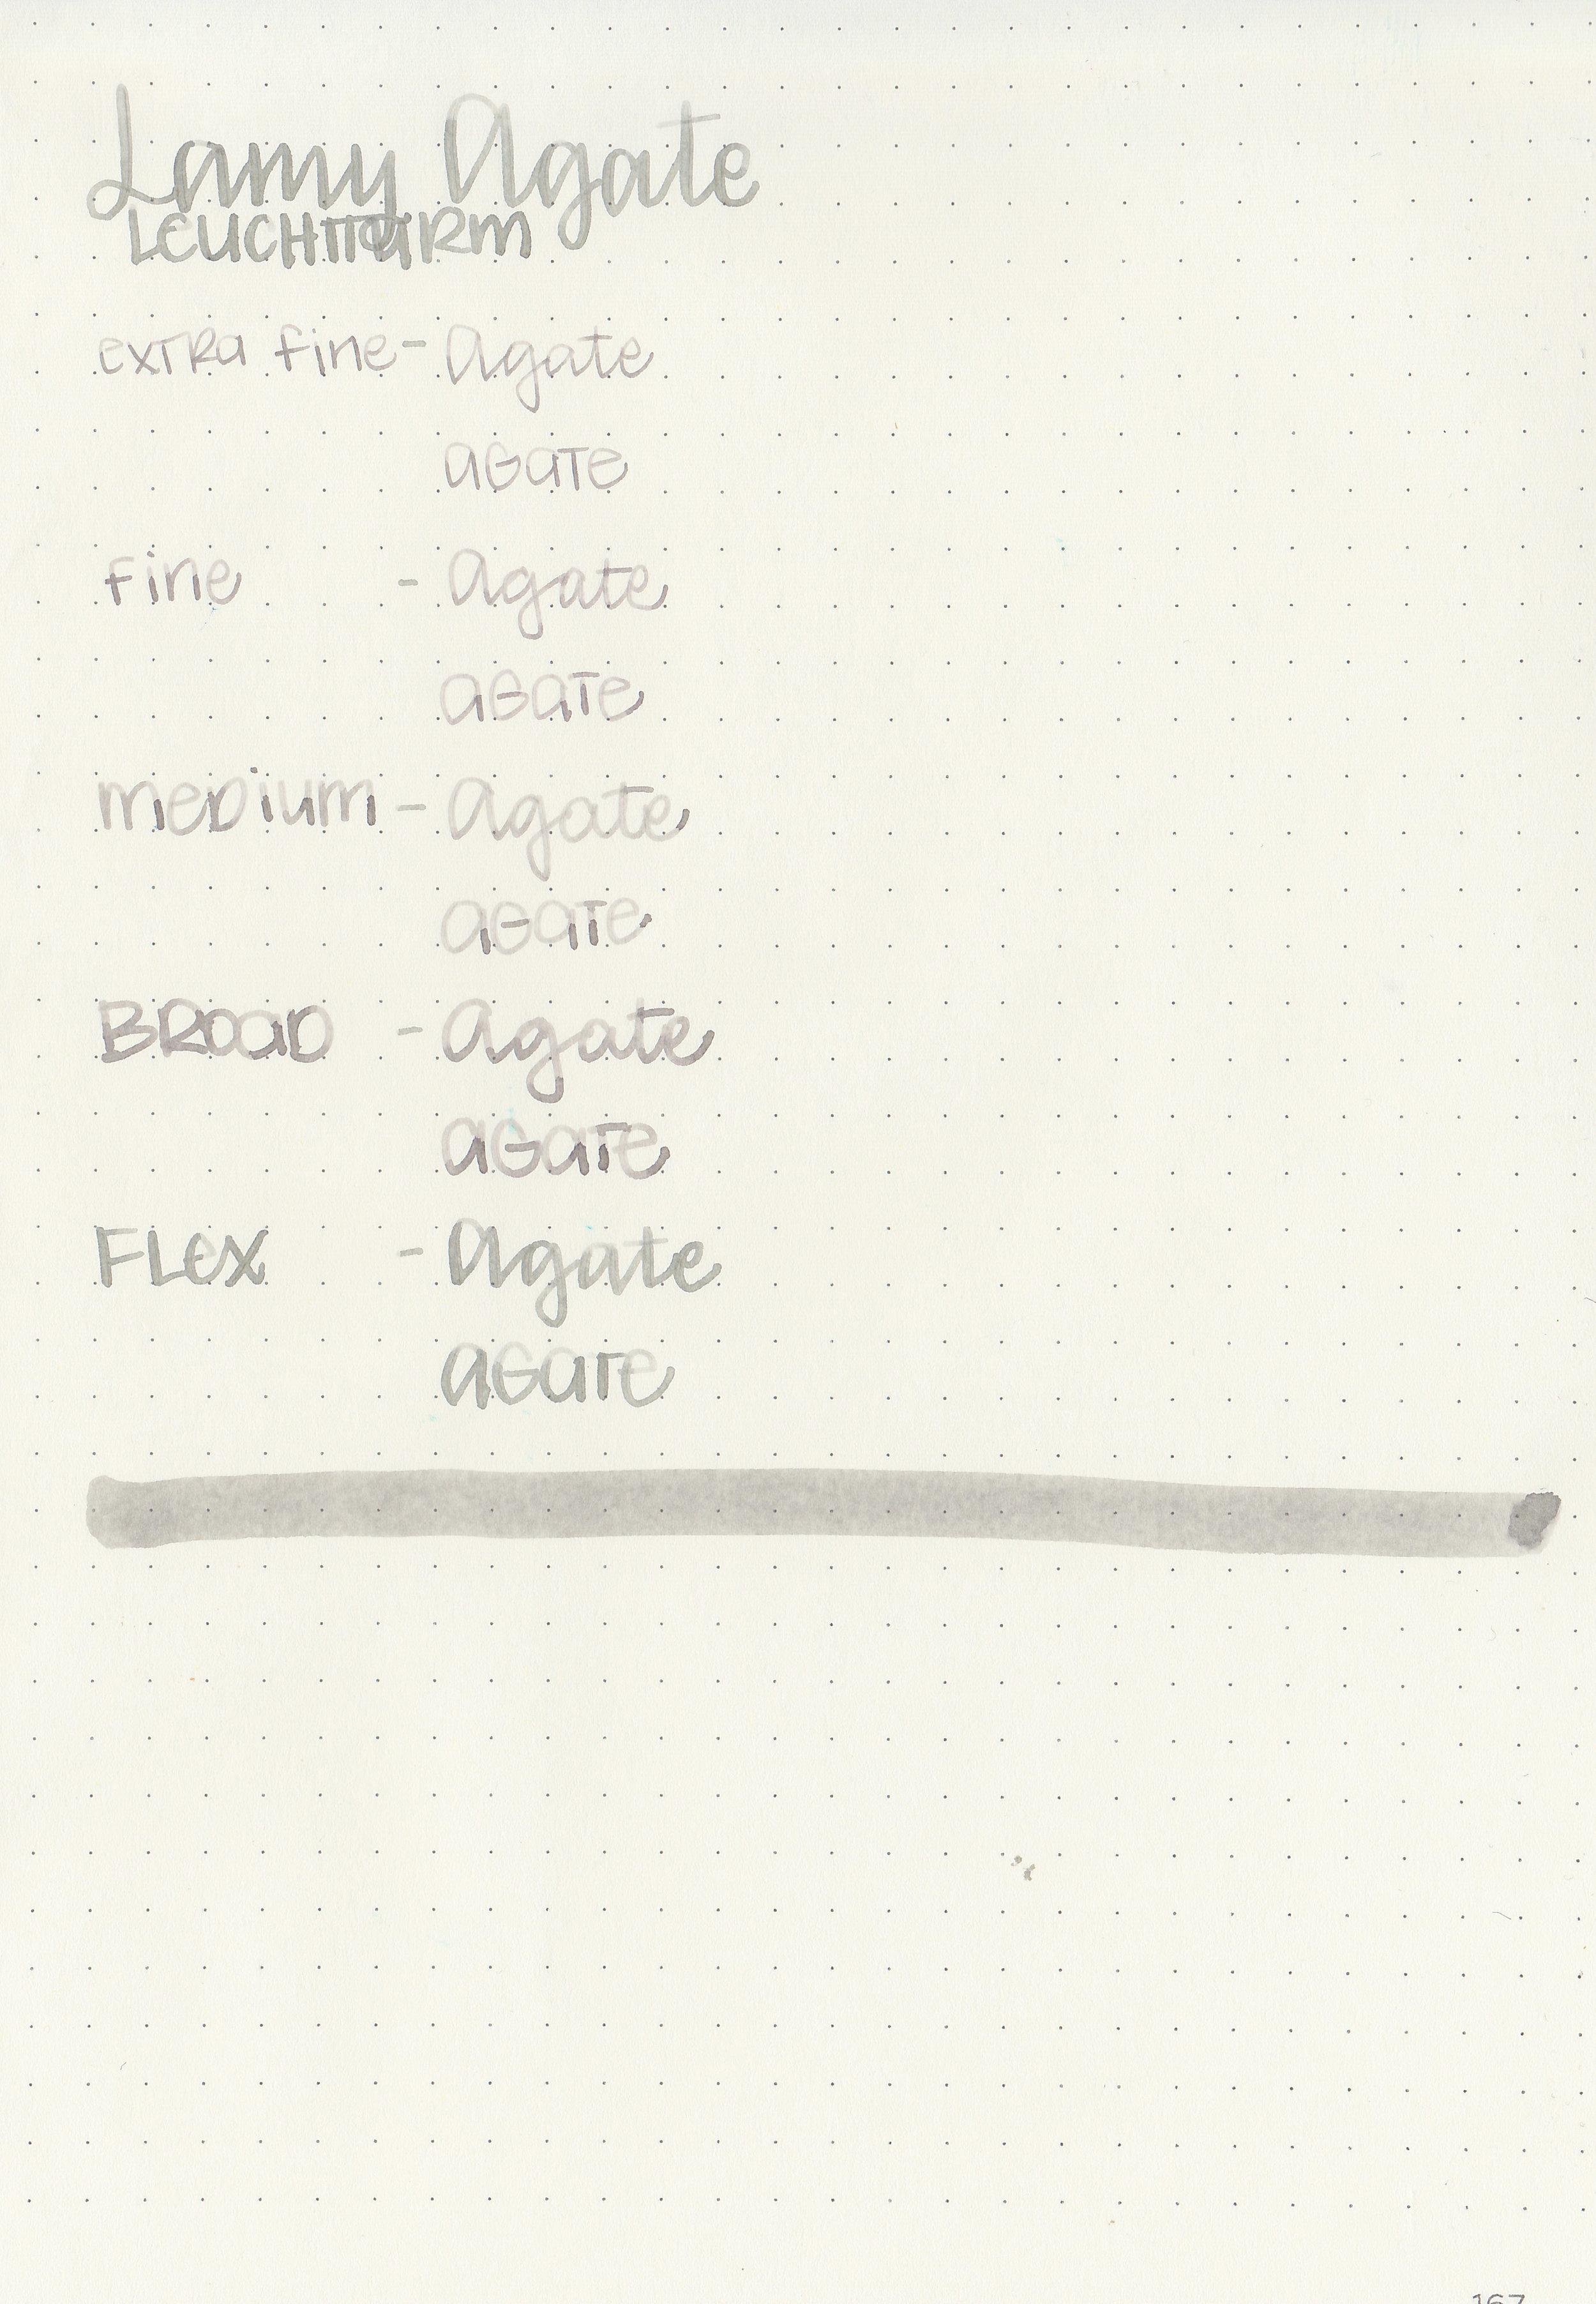 Lamy Agate
LEUCHTTURM
EXTRA fine - Agate
AGATE
fine - Agate
AGATE
MEDIUM - Agate
AGATE
BROAD - Agate
AGATE
FLEX - Agate
AGATE
167